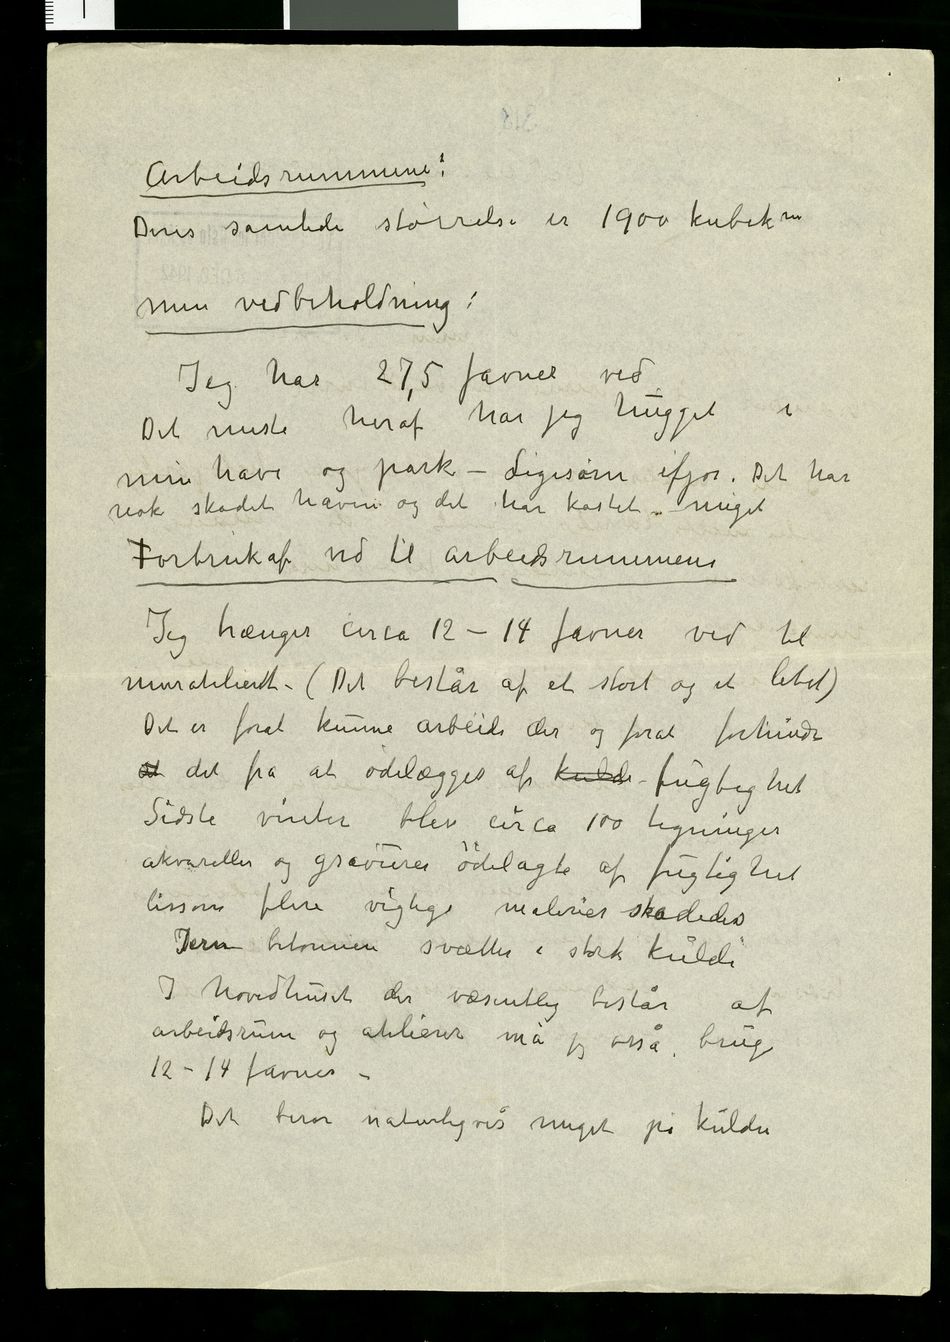 Arbeidsrummene:
Deres samlede størrelse er 1900 kubikm
min vedbeholdning:
Jeg har 27,5 favner ved
Det meste heraf har jeg hugget i
min have og park – Ligesom ifjor. Det har
nok skadet haven og det har kostet meget
Forbruk af ved til arbeidsrummene
Jeg trænger circa 12 – 14 favner ved til
muratelieret. (Det består af et stort og et litet)
Det er forat kunne arbeide der og forat forhindre
at det fra at ødelægges af kulde fugtighet
Sidste vinter blev circa 100 tegninger
akvareller og gravurer ödelagte af fugtighet
lissom flere vigtige malerier skadedes
Jern betonnen svætter i stærk kulde
I hovedhuset der væsentlig består af
arbeidsrum og atelierer må jeg også bruge
12 – 14 favner –
Det beror naturligvis meget på kulden